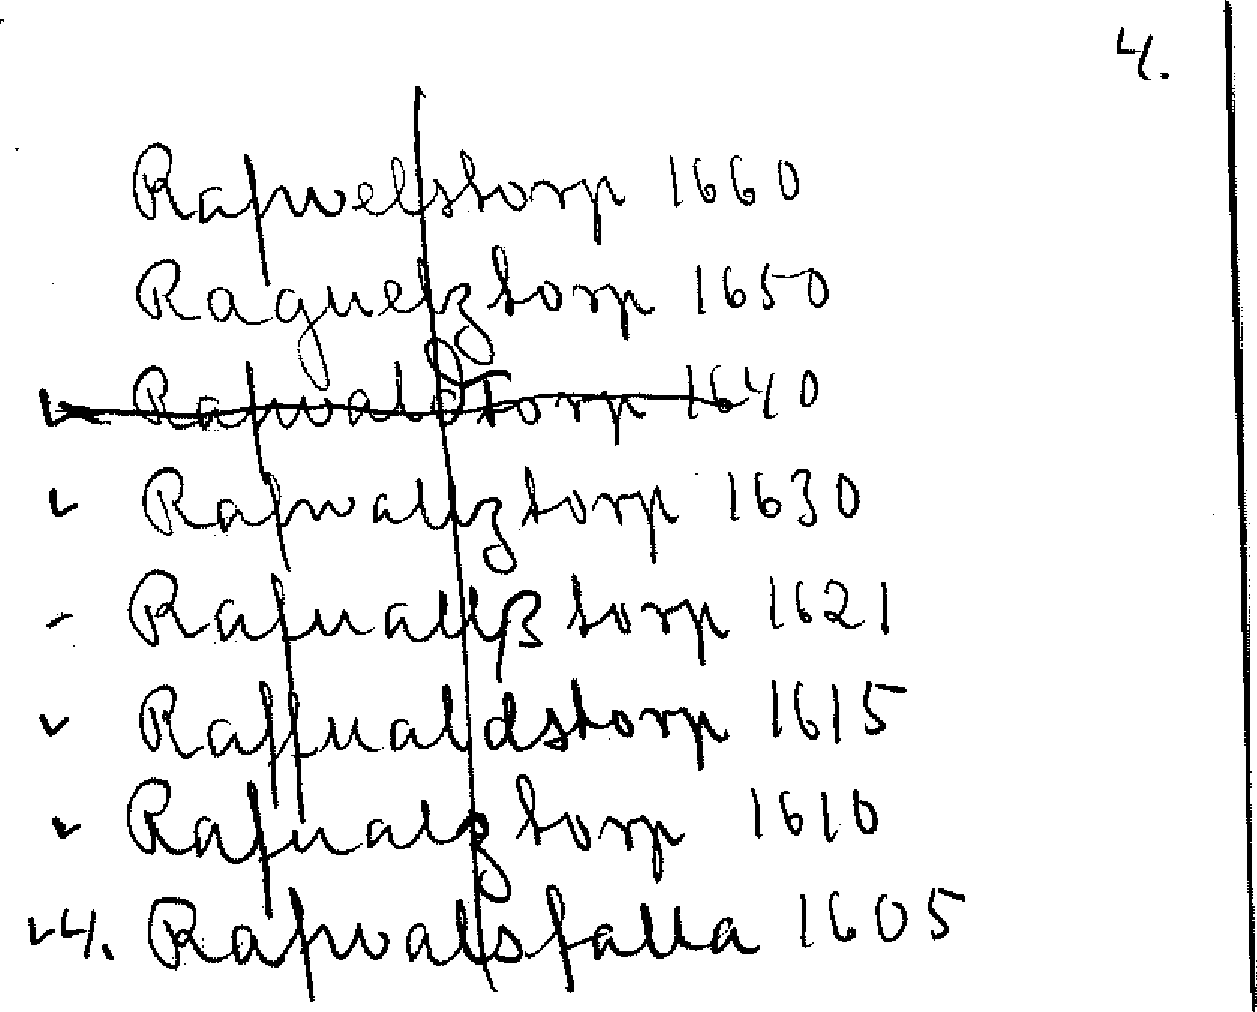 4.
Rafwelstorp 1660
Raguelztorp 1650
Rafwalstorp 1640
Rafwallztorp 1630
Rafuallßtorp 1621
Raffualdstorp 1615
Rafualztorp 1610
4. Rafwalsfalla 1605